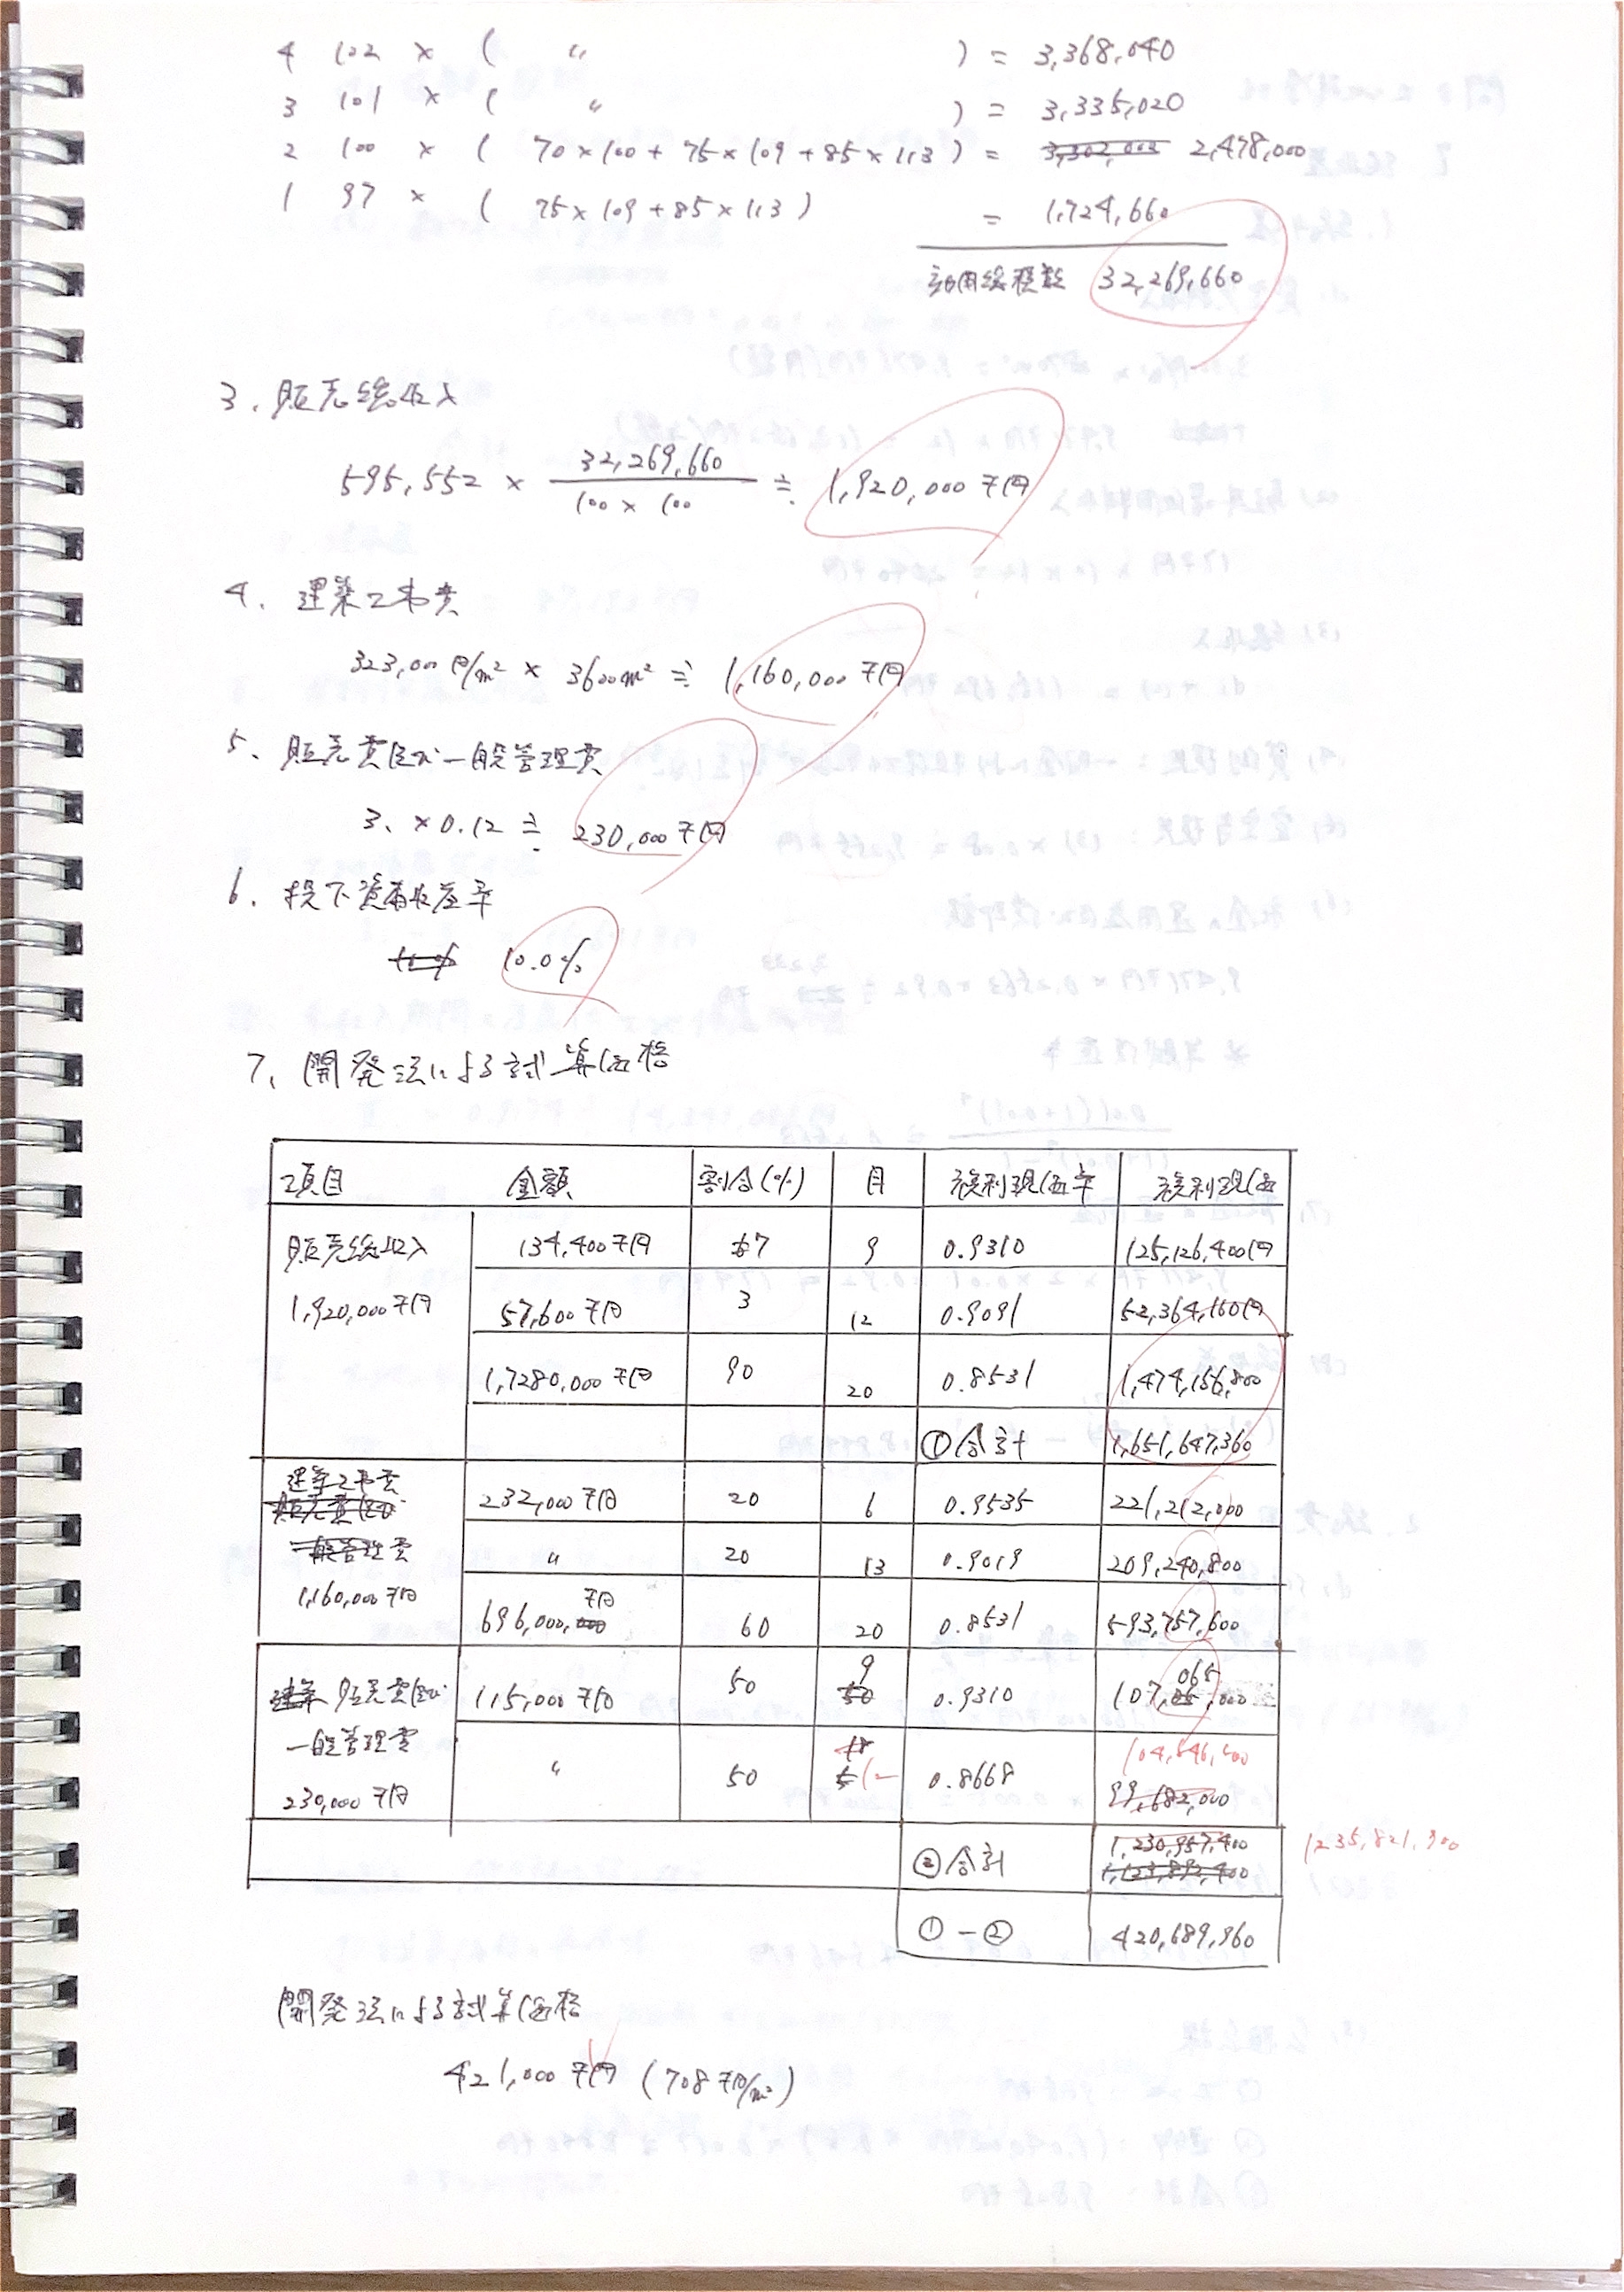 4 102 × ( 〃 ) = 3,368,040
3 101 × ( 〃 ) = 3,335,020
2 100 × ( 70×100 + 75×109 + 85×113 ) = 3,302,003 2,478,000
1 97 × ( 75×109 + 85×113 ) = 1,724,660
効用総積数 32,269,660
3. 販売総収入
595,552 × 32,269,660 / 100×100 ≒ 1,920,000千円
4. 建築工事費
323,000円/m² × 3600m² ≒ 1,160,000千円
5. 販売費及び一般管理費
3. ×0.12 ≒ 230,000千円
6. 投下資本収益率
10% 10.0%
7. 開発法による試算価格
項目 金額 割合(%) 月 複利現価率 複利現価
販売総収入 134,400千円 7 9 0.9310 125,126,400円
1,920,000千円 57,600千円 3 12 0.9091 52,364,160円
1,7280,000千円 90 20 0.8531 1,474,156,800
①合計 1,651,647,360
建築工事費 232,000千円 20 6 0.9535 221,212,000
販売費及び
一般管理費 〃 20 13 0.9019 209,240,800
1,160,000千円 696,000,000千円 60 20 0.8531 593,757,600
建築 販売費及び 115,000千円 50 50 9 0.9310 107,065,000
一般管理費 〃 50 18 12 0.8668 104,546,400
230,000千円 99,682,000
②合計 1,230,957,400 1235,821,900
1,123,892,400
①-② 420,689,960
開発法による試算価格
421,000千円 (708千円/m²)